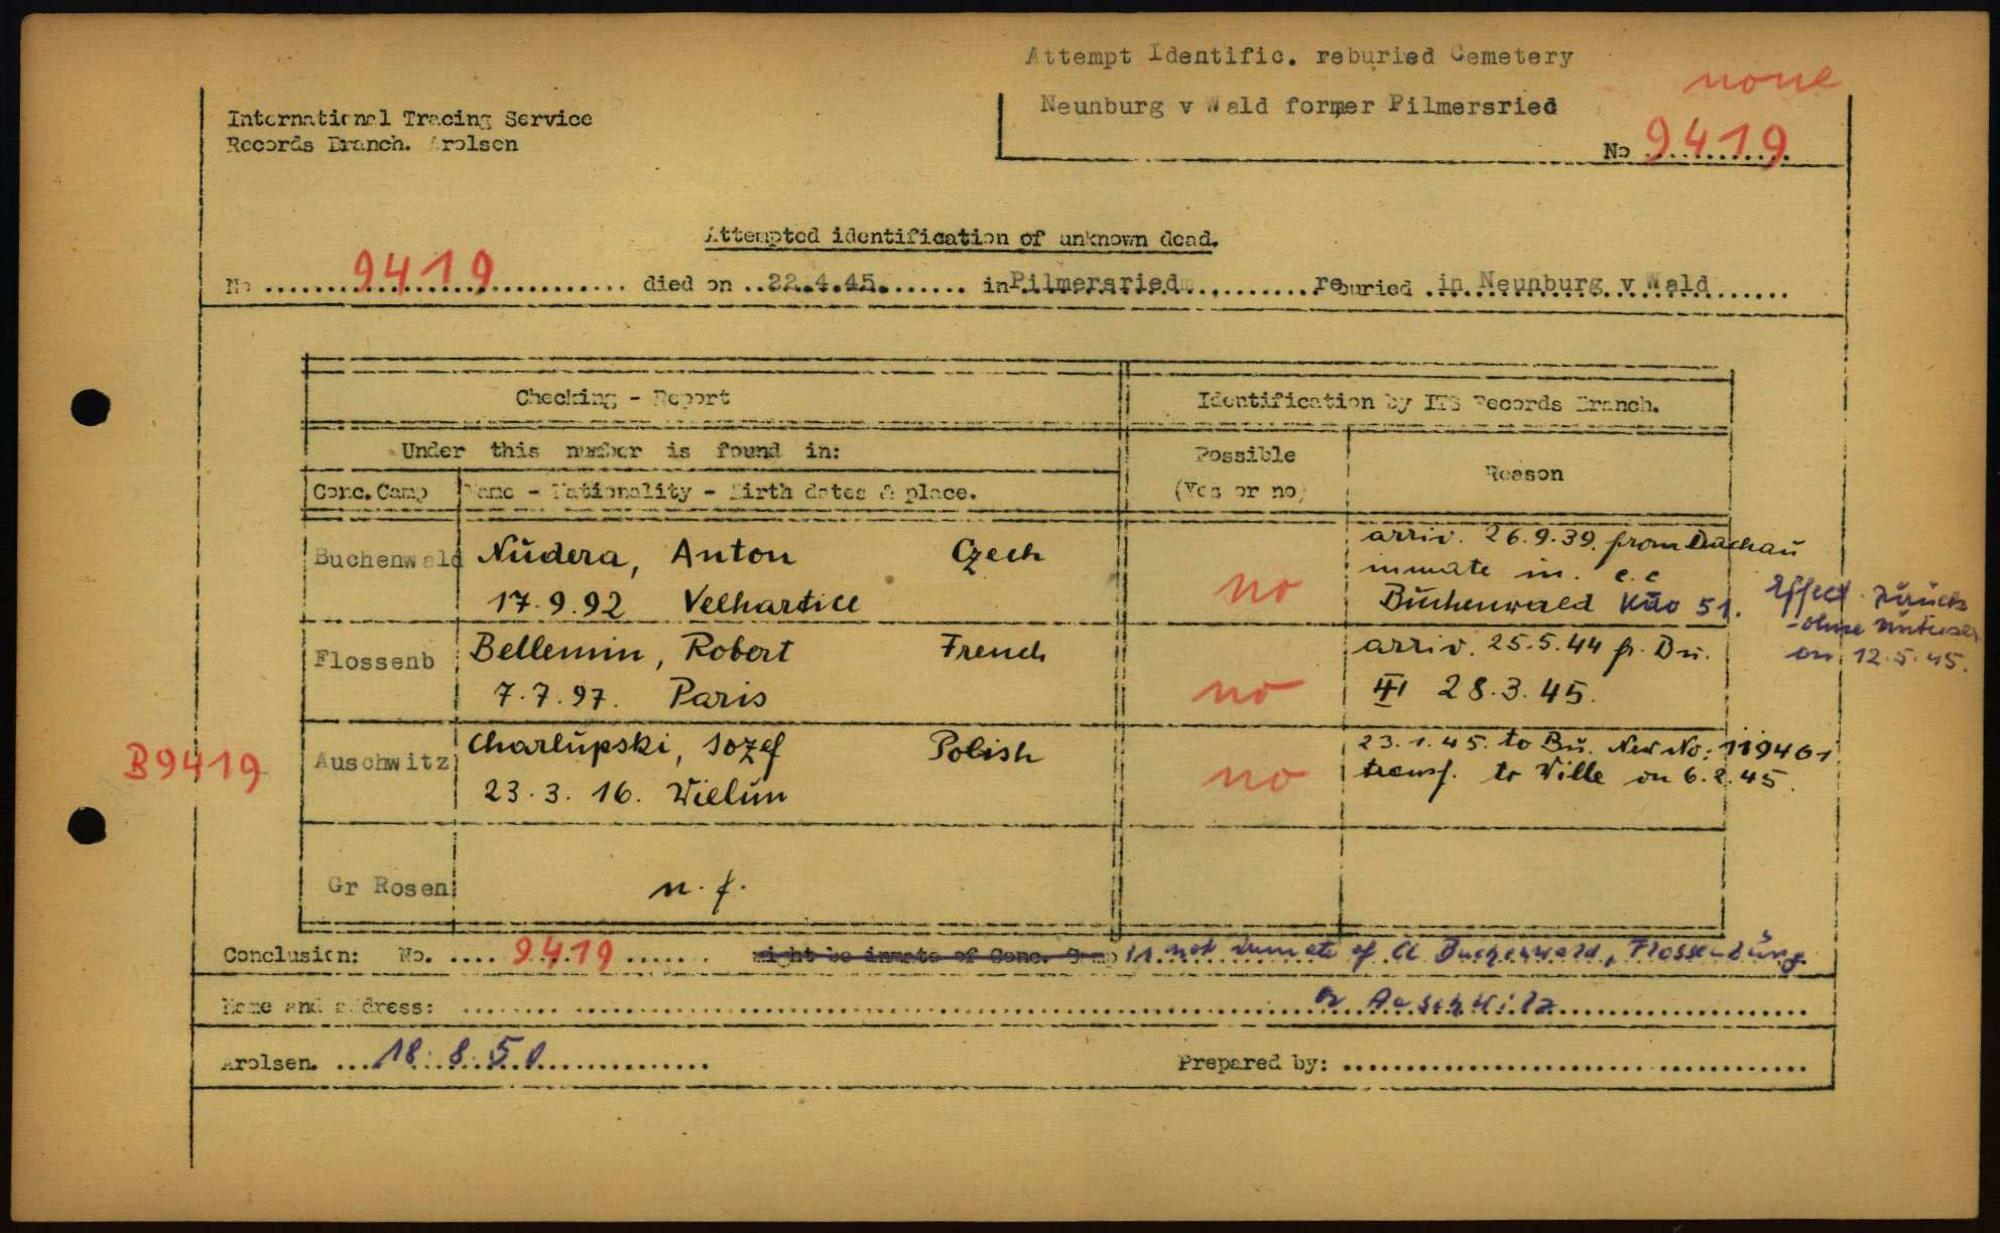 Attempt Identific. reburied Cemetery
none
Neunburg v Wald former Pilmersried
No 9419
International Tracing Service
Records Branch. Arolsen
Attempted identification of unknown dead.
No 9419 died on 22.4.45. in Pilmersried reburied in Neunburg v Wald
Checking - Report
Identification by ITS Records Branch.
Under this number is found in:
Possible
(Yes or no)
Reason
Conc. Camp
Name - Nationality - Birth dates & place.
Buchenwald
Nudera, Anton Czech
17.9.92 Velhartice
no
arriv. 26.9.39. from Dachau
inmate in. c.c
Buchenwald 51.
Effect. zurück
ohne
on 12.5.45.
Flossenb
Bellemin, Robert French
7.7.97. Paris
no
arriv. 25.5.44 fr. Bu.
28.3.45.
B9419
Auschwitz
Charlupski, Jozef Polish
23.3.16. Wielun
no
23.1.45. to Bu. New No: 119461
transf. to Ville on 6.2.45.
Gr Rosen
n.f.
Conclusion: No. 9419 might be inmate of Conc. Camp is not inmate of Cl Buchenwald, Flossenbürg
Name and address: or Auschwitz
Arolsen. 18.8.50
Prepared by: